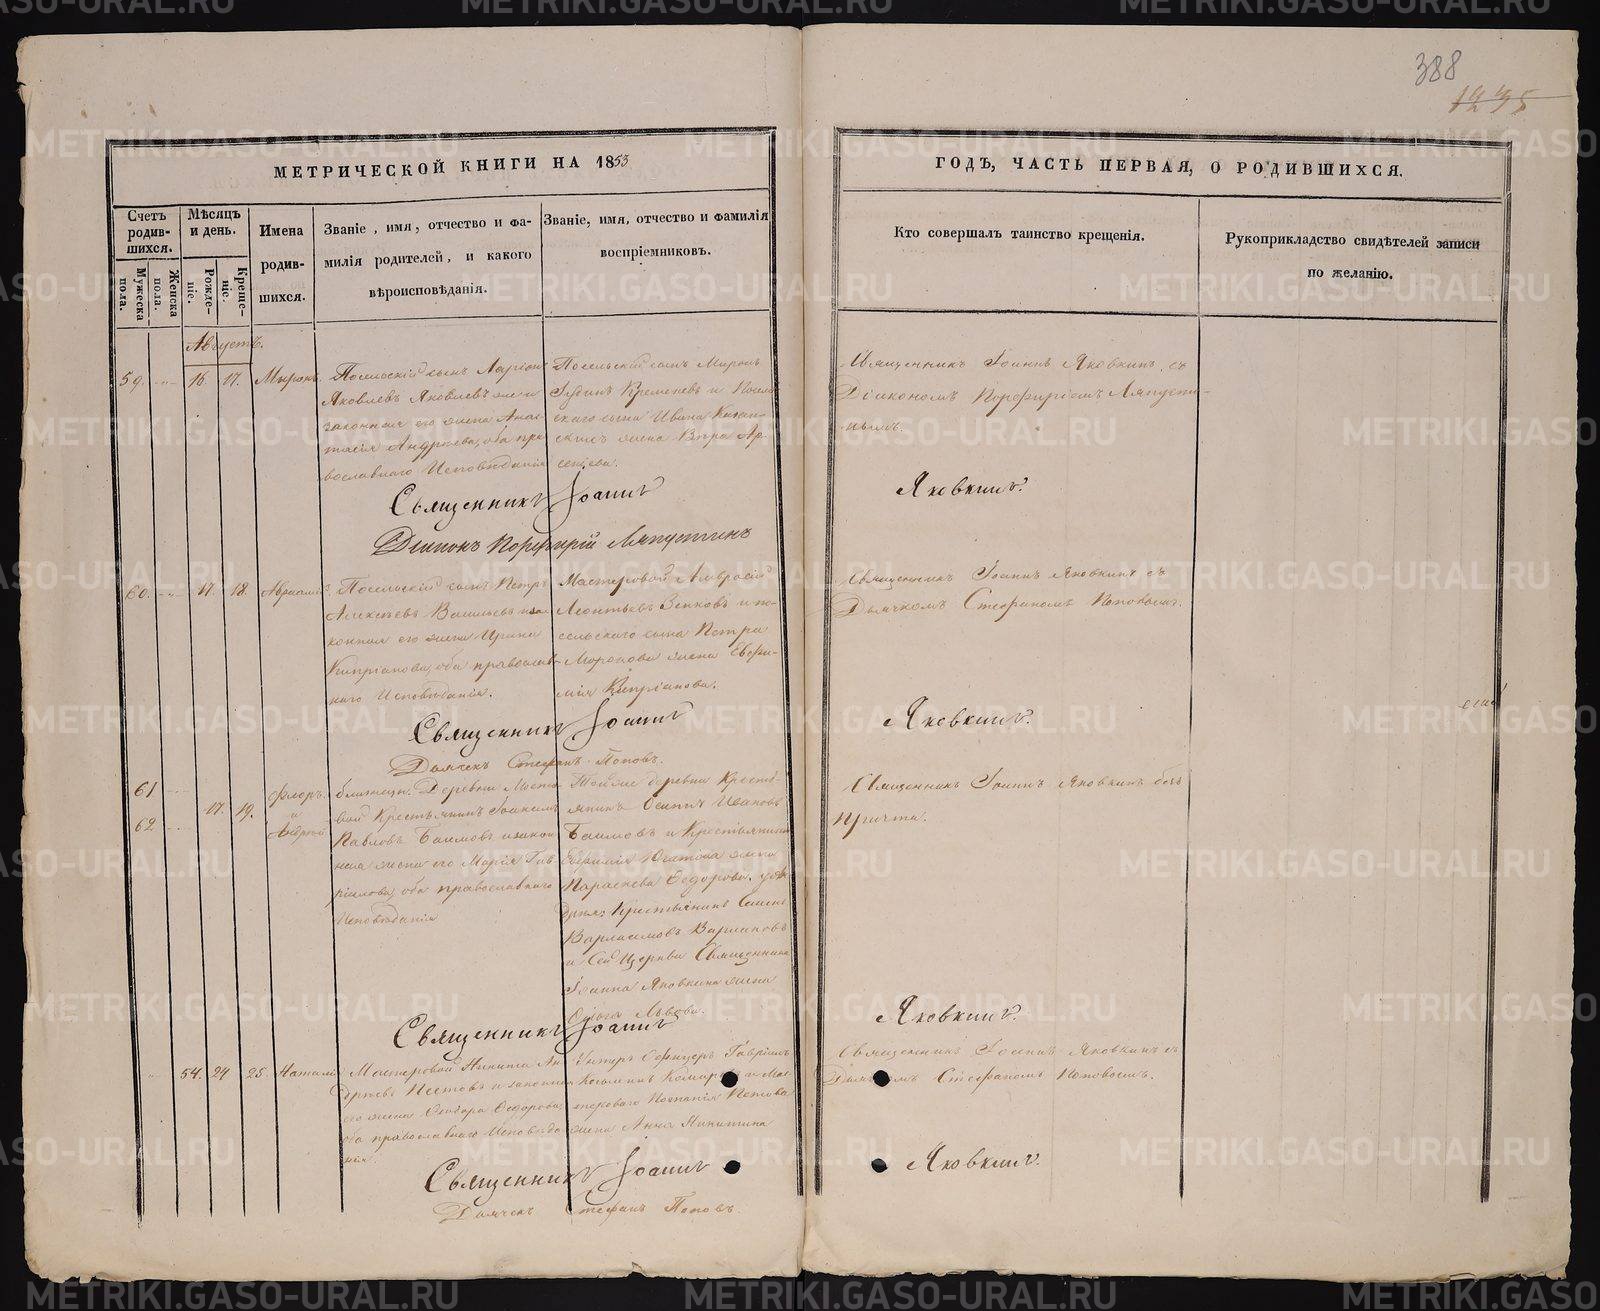 388
1235
МЕТРИЧЕСКОЙ КНИГИ НА 1853
ГОДЪ, ЧАСТЬ ПЕРВАЯ, О РОДИВШИХСЯ.
Счетъ родив-шихся.
Мужеска пола.
Женска пола.
Мѣсяцъ и день.
Рожде-ніе.
Креще-ніе.
Имена
родив-
шихся.
Званіе, имя, отчество и фа-
милія родителей, и какого
вѣроисповѣданія.
Званіе, имя, отчество и фамилія
воспріемниковъ.
Кто совершалъ таинство крещенія.
Рукоприкладство свидѣтелей записи
по желанію.
Августъ.
59. 16. 17. Миронъ.
Посельскій сынъ Ларіон
Яковлевъ Яковлевъ и
законная его жена Анас-
тасія Андреева, оба пра-
вославнаго Исповѣданія
Посельскій сынъ Миронъ
Кременевъ и Посель-
скаго сына Ивана Казан-
жена Вѣра Ар-
сеніева.
Священникъ Іоаннъ Яковкинъ, съ
Діакономъ Порфиріемъ Ляпусти-
нымъ.
Священникъ Іоаннъ Яковкинъ.
Діаконъ Порфирій Ляпустинъ
60. 17. 18.
Посельскій сынъ Петръ
Алексѣевъ Васильевъ и за-
конная его жена Ирина
Кипріанова, оба православ-
наго Исповѣданія.
Мастеровой Амвросій
Леонтьевъ Зенковъ и по-
сельскаго сына Петра
Морозова жена Евфи-
мія Кипріанова.
Священникъ Іоаннъ Яковкинъ съ
Дьячкомъ Стефаномъ Поповымъ.
Священникъ Іоаннъ Яковкинъ.
Дьячекъ Стефанъ Поповъ.
61
62
17. 19.
Флоръ
и
Андрей
близнецы. Деревни
Крестьянинъ Іоакимъ
Павловъ Баимовъ и закон-
ная жена его Марія Гав-
ріилова, оба православнаго
Исповѣданія
Той же деревни Кресть-
янинъ Осипъ Ивановъ
Баимовъ и Крестьянина
жена
Параскева Федорова. у
Крестьянинъ Семенъ
Варламовъ Варлаковъ
и Сей Церкви Священника
Іоанна Яковкина жена
Ольга Львова.
Священникъ Іоаннъ Яковкинъ безъ
Причта.
Священникъ Іоаннъ Яковкинъ.
54. 24. 25. Наталія
Мастеровой Никита Ан-
дреевъ и законная
его жена Федорова,
оба православнаго Исповѣда-
нія.
Унтеръ Офицеръ Гавріилъ
Козьминъ и Мас-
тероваго Попова
жена Анна Никитина
Священникъ Іоаннъ Яковкинъ съ
Дьячкомъ Стефаномъ Поповымъ.
Священникъ Іоаннъ Яковкинъ.
Дьячекъ Стефанъ Поповъ.
METRIKI.GASO-URAL.RU